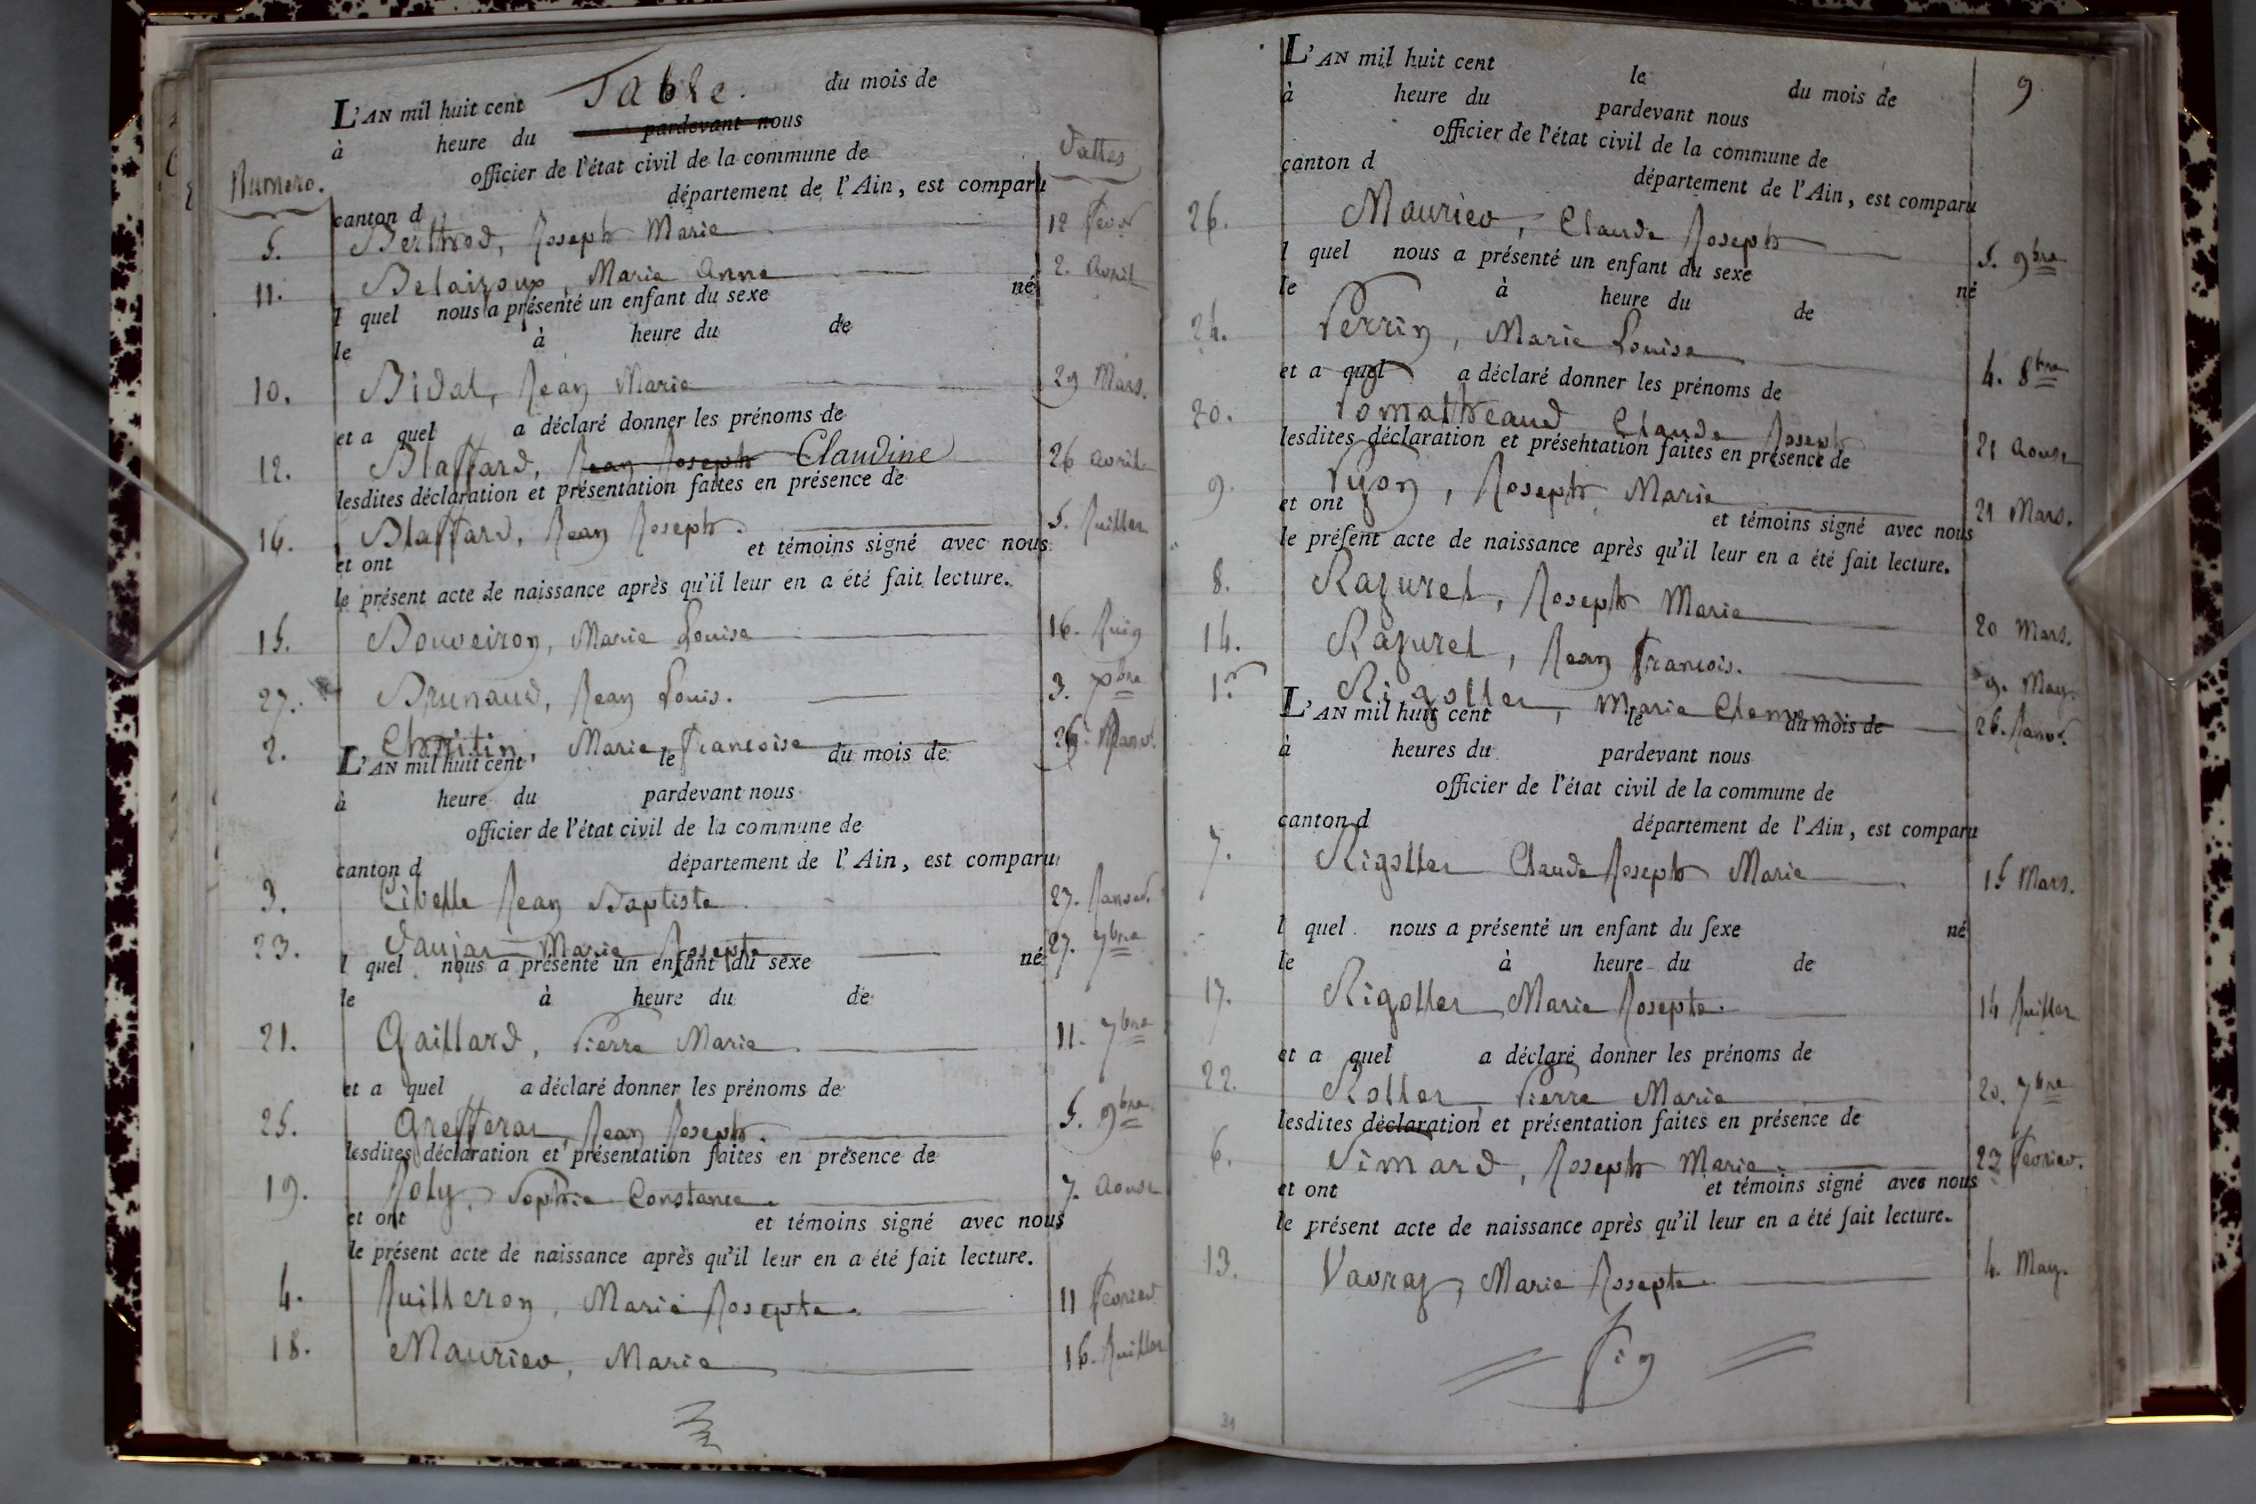 Table.
L'AN mil huit cent du mois de
à heure du pardevant nous
officier de l'état civil de la commune de
Dattes
Numero.
département de l'Ain, est comparu
canton d
5. Berthod, Joseph Marie 12 fevr
11. Belairoux, Marie Anne 2. avril
l quel nous a présenté un enfant du sexe né
le à heure du de
10. Bidal, Jean Marie 29 Mars.
et a quel a déclaré donner les prénoms de
12. Blaffard, Jean Joseph Claudine 26 avril
lesdites déclaration et présentation faites en présence de
16. Blaffard, Jean Joseph. 5. Juillet
et ont et témoins signé avec nous
le présent acte de naissance après qu'il leur en a été fait lecture.
15. Bouveiron, Marie Louise 16. Juin
27. Brunaud, Jean Louis. 3. Xbre
2. Chritin, Marie Francoise 26. Janvr.
L'AN mil huit cent le du mois de
à heure du pardevant nous
officier de l'état civil de la commune de
canton d département de l'Ain, est comparu
3. Civelle Jean Baptiste 27. Janvr.
23. Daujat Marie Josepte 27. 7bre
l quel nous a présenté un enfant du sexe né
le à heure du de
21. Gaillard, Pierre Marie 11. 7bre
et a quel a déclaré donner les prénoms de
25. Grefferat, Jean Joseph. 5. 9bre
lesdites déclaration et présentation faites en présence de
19. Joly, Sophie Constance. 7. Aoust
et ont et témoins signé avec nous
le présent acte de naissance après qu'il leur en a été fait lecture.
4. Juilleron, Marie Josepte. 11 fevrier
18. Maurier, Marie 16. Juillet
L'AN mil huit cent le du mois de
9
à heure du pardevant nous
officier de l'état civil de la commune de
canton d département de l'Ain, est comparu
26. Maurier, Claude Joseph 5. 9bre
l quel nous a présenté un enfant du sexe né
le à heure du de
24. Perrin, Marie Louise 4. 8bre
et a quel a déclaré donner les prénoms de
20. Pomatheaud Claude Joseph 21 Aoust
lesdites déclaration et présentation faites en présence de
9. Pyon, Joseph Marie 21 Mars.
et ont et témoins signé avec nous
le présent acte de naissance après qu'il leur en a été fait lecture.
8. Razurel, Joseph Marie 20 Mars.
14. Razurel, Jean Francois. 9. May.
1.er Rigollet, Marie 26. Janvr.
L'AN mil huit cent le du mois de
à heures du pardevant nous
officier de l'état civil de la commune de
canton d département de l'Ain, est comparu
7. Rigollet Claude Joseph Marie 15 Mars.
l quel nous a présenté un enfant du sexe né
le à heure du de
17. Rigollet Marie Josepte. 14 Juillet
et a quel a déclaré donner les prénoms de
22. Rollet, Pierre Marie 20. 7bre
lesdites déclaration et présentation faites en présence de
6. Simard, Joseph Marie. 23 fevrier.
et ont et témoins signé avec nous
le présent acte de naissance après qu'il leur en a été fait lecture.
13. Vauray, Marie Josepte. 4. May.
Fin